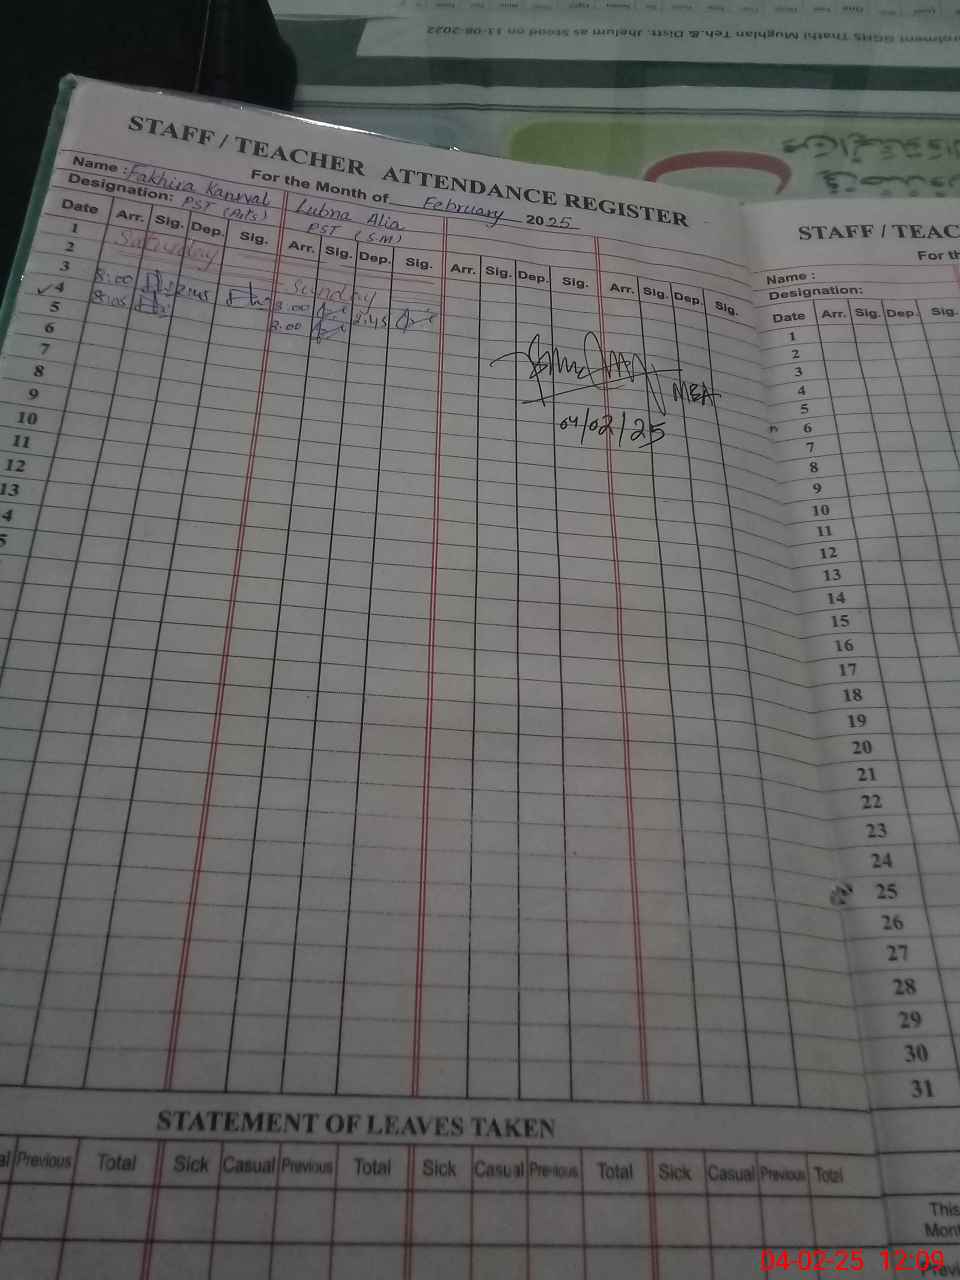 rolment GGHS Thathi Mughlan Teh.& Distt. Jhelum as Stood on 11-08-2022
STAFF / TEACHER ATTENDANCE REGISTER
For the Month of February 2025
Name : Fakhira Kanwal Lubna Alia
Designation: PST (Arts) PST (S.M)
Date Arr. Sig. Dep. Sig. Arr. Sig. Dep. Sig. Arr. Sig. Dep. Sig. Arr. Sig. Dep. Sig.
1 Saturday
2 Sunday
3 8:00 2:45 8.00 2:45
✓4 8:05 8.00
5
6
7
8
9
10
11
12
13
4
5
MEA
04/02/25
STATEMENT OF LEAVES TAKEN
al Previous Total Sick Casual Previous Total Sick Casual Previous Total Sick Casual Previous Total
STAFF / TEAC
For th
Name :
Designation:
Date Arr. Sig. Dep. Sig.
1
2
3
4
5
6
7
8
9
10
11
12
13
14
15
16
17
18
19
20
21
22
23
24
25
26
27
28
29
30
31
This
Mont
Previ
04-02-25 12:09